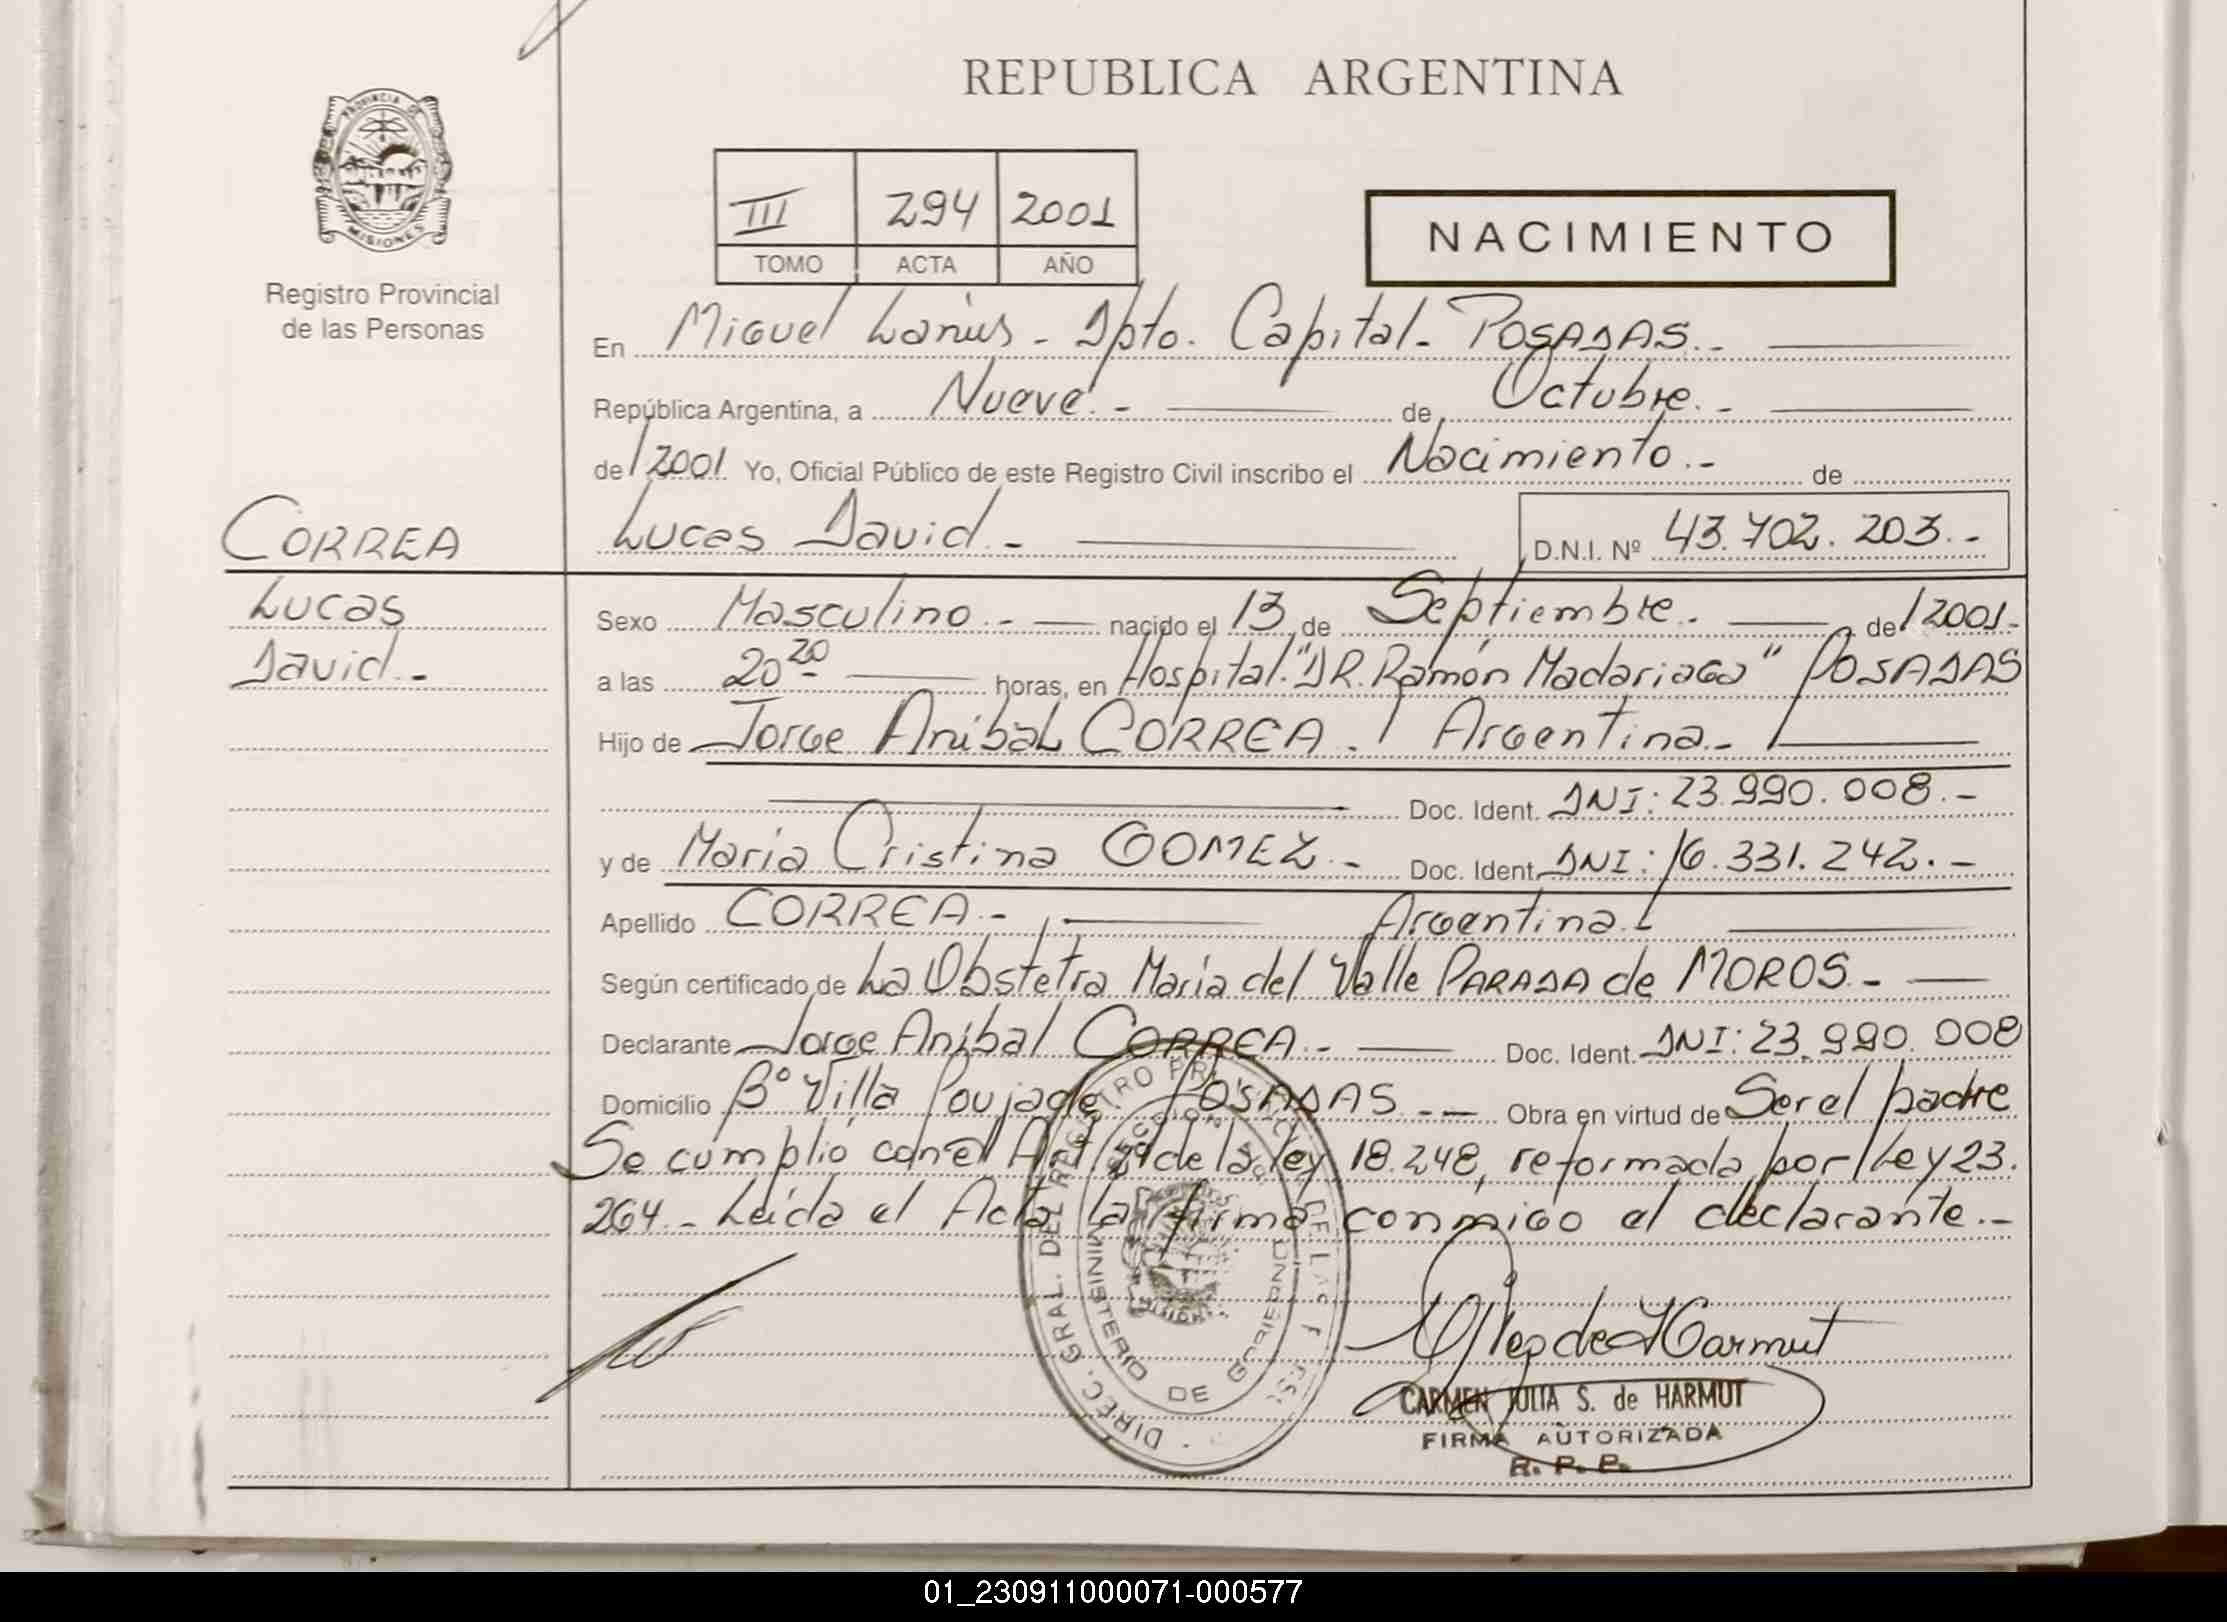 REPUBLICA ARGENTINA
PROVINCIA DE
MISIONES
Registro Provincial
de las Personas
III 294 2001
TOMO ACTA AÑO
NACIMIENTO
En Miguel Lanús - Dpto. Capital - POSADAS.-
República Argentina, a Nueve.- de Octubre.-
de 2001. Yo, Oficial Público de este Registro Civil inscribo el Nacimiento.- de
CORREA
Lucas David.- D.N.I. Nº 43.702.203.-
Lucas
David.-
Sexo Masculino.- nacido el 13 de Septiembre.- de 2001.-
a las 20 20 horas, en Hospital "DR. Ramón Madariaga" POSADAS
Hijo de Jorge Aníbal CORREA. Argentina.-
Doc. Ident. DNI: 23.990.008.-
y de María Cristina GOMEZ.- Doc. Ident. DNI: 16.331.242.-
Apellido CORREA.- Argentina.-
Según certificado de La Obstetra María del Valle PARADA de MOROS.-
Declarante Jorge Aníbal CORREA.- Doc. Ident. DNI: 23.990.008
Domicilio Bº Villa Poujade. POSADAS.- Obra en virtud de Ser el padre
Se cumplió con el Art. de la ley 18.248, reformada por Ley 23.
264.- Leída el Acta la firma conmigo el declarante.-
DIREC. GRAL. DEL REGISTRO PROVINCIAL DE LAS PERS
MINISTERIO DE GOBIERNO
CARMEN JULIA S. de HARMUT
FIRMA AUTORIZADA
R. P. P.
01_230911000071-000577